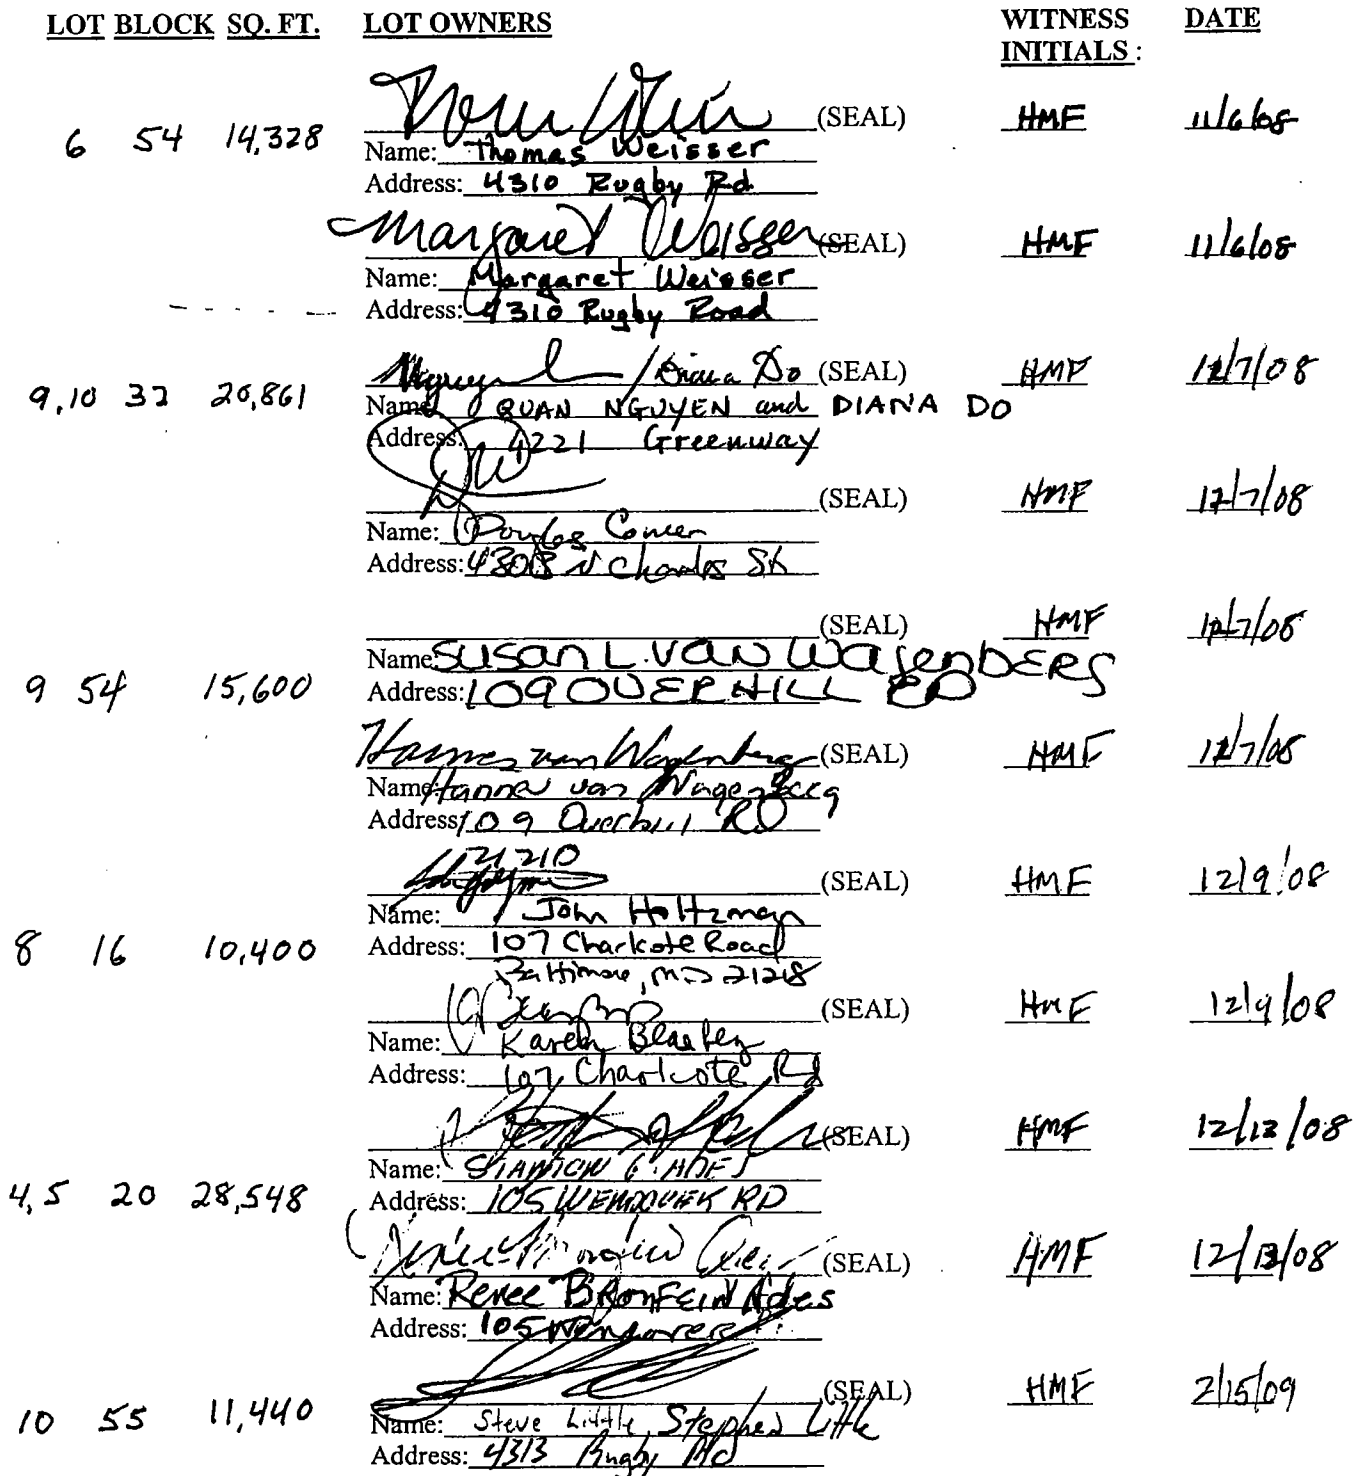 LOT BLOCK SQ. FT. LOT OWNERS WITNESS INITIALS : DATE
(SEAL) HMF 11/6/08
6 54 14,328 Name: Thomas Weisser
Address: 4310 Rugby Rd
Margaret Weisser (SEAL) HMF 11/6/08
Name: Margaret Weisser
Address: 4310 Rugby Road
Nguyen / Diana Do (SEAL) HMF 12/7/08
9,10 32 20,861 Name: QUAN NGUYEN and DIANA DO
Address: 4221 Greenway
(SEAL) HMF 12/7/08
Name: Douglas Comer
Address: 4303 N Charles St
(SEAL) HMF 12/7/08
Name: SUSAN L. VAN WAGENBERG
9 54 15,600 Address: 109 OVERHILL RD
Hannes van Wagenberg (SEAL) HMF 12/7/08
Name: Hannes van Wagenberg
Address: 109 Overhill RD
21210
(SEAL) HMF 12/9/08
Name: John Holtzman
8 16 10,400 Address: 107 Charlcote Road
Baltimore, MD 21218
(SEAL) HMF 12/9/08
Name: Karen
Address: 107 Charlcote Rd
(SEAL) HMF 12/12/08
Name: STANTON ADES
4,5 20 28,548 Address: 105 WENDOVER RD
(SEAL) HMF 12/13/08
Name: Renee BRONFEIN Ades
Address: 105 Wendover
(SEAL) HMF 2/15/09
10 55 11,440 Name: Steve Little, Stephen Little
Address: 4313 Rugby Rd